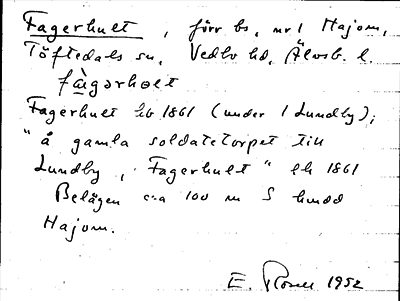 Fagerhult, förr bs, nr 1 Hajom,
Töftedals sn, Vedbo hd, Älvsb. l.
fàgərholt
Fagerhult hb 1861 (under 1 Lundby);
"å gamla soldatetorpet till
Lundby, Fagerhult" lh 1861
Belägen c:a 100 m S
Hajom.
E. Rosell 1952